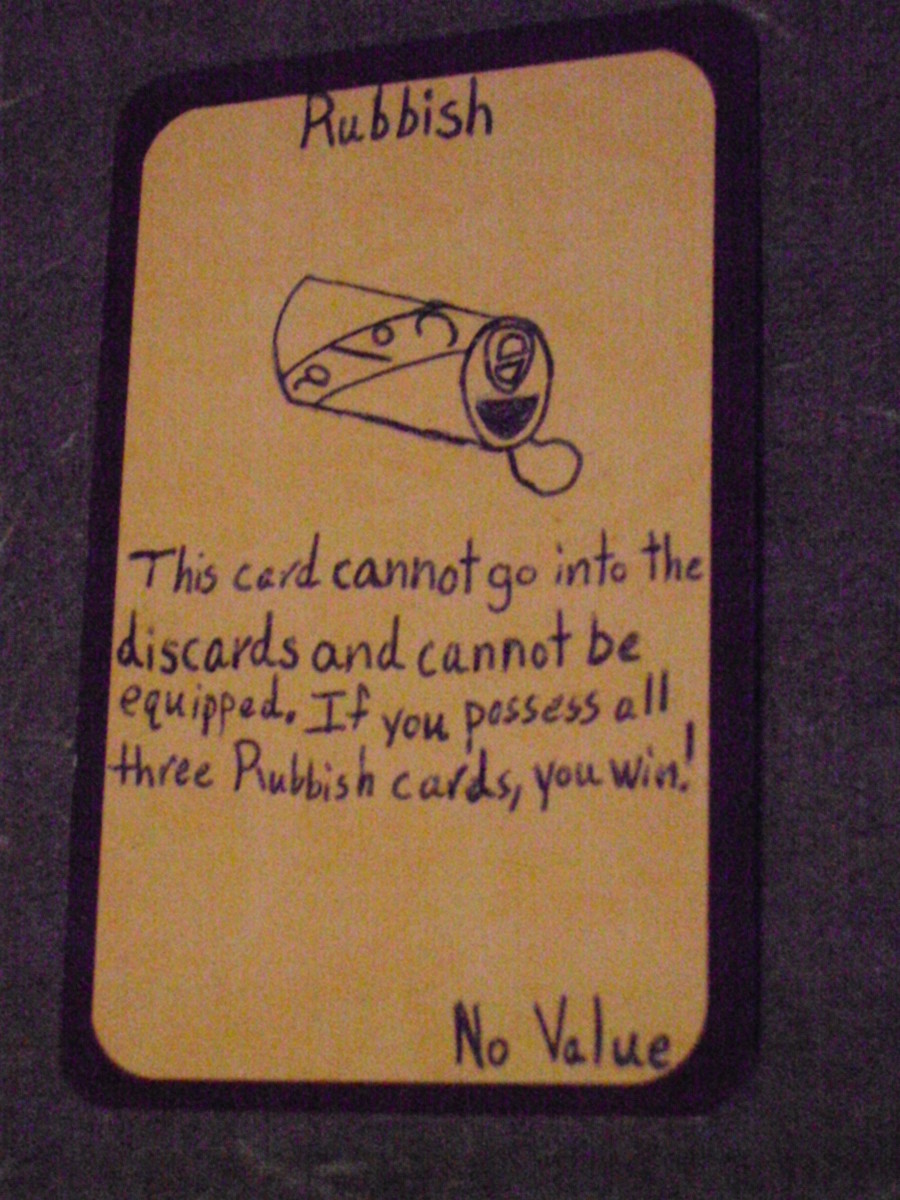 Rubbish
This card cannot go into the
discards and cannot be
equipped. If you possess all
three Rubbish cards, you win!
No Value